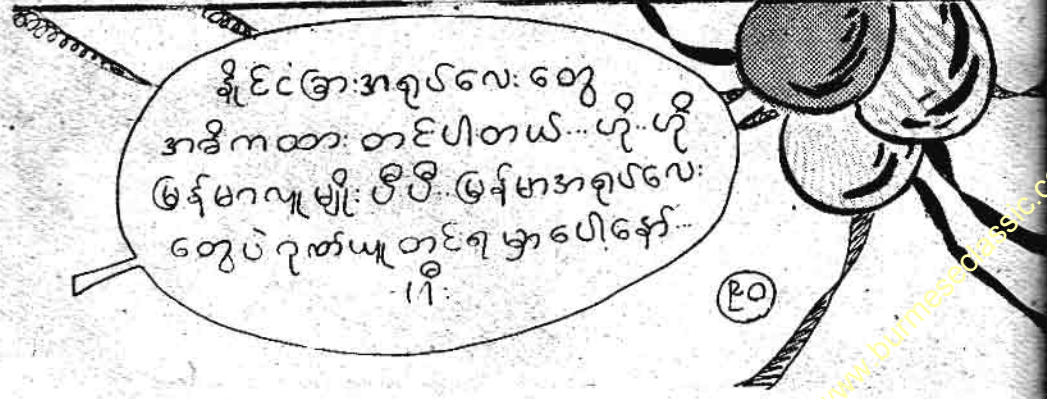 နိုင်ငံခြားအရုပ်လေး တွေ
အဓိကထား တင်ပါတယ်... ဟို..ဟို
မြန်မာလူမျိုး ပီပီ..မြန်မာအရုပ်လေး
တွေပဲ ဂုဏ်ယူ တင်ရ မှာ ပေါ့နော်...
ဟီး
၃၀
www.burmeseclassic.co